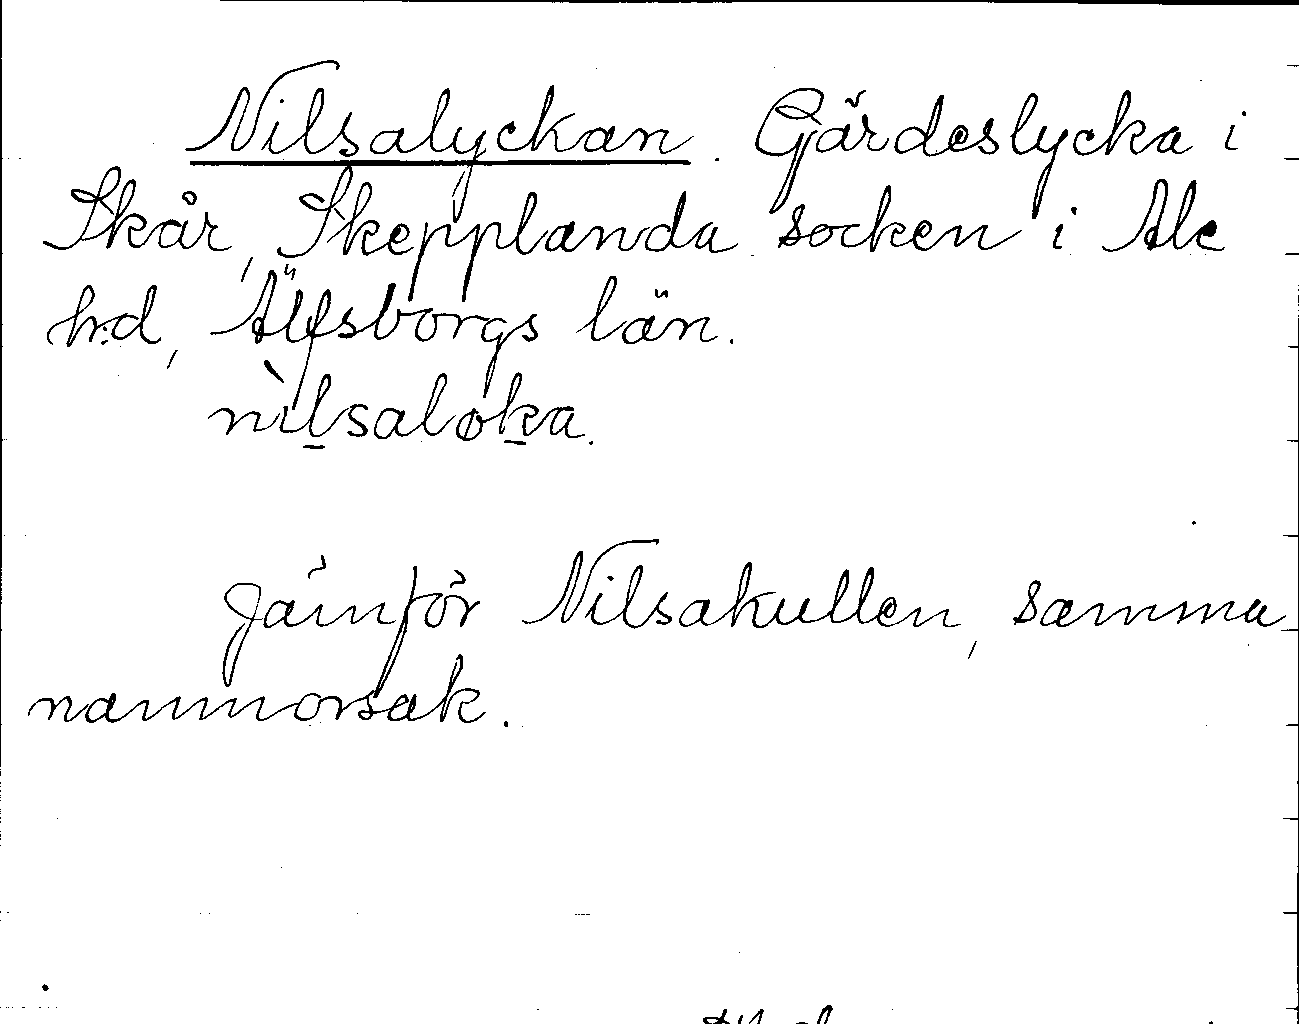 Nilsalyckan. Gärdeslycka i
Skår, Skepplanda socken i Ale
h:d, Älfsborgs län.
nìl̲saløk̲a.
Jämför Nilsakullen, samma
namnorsak.